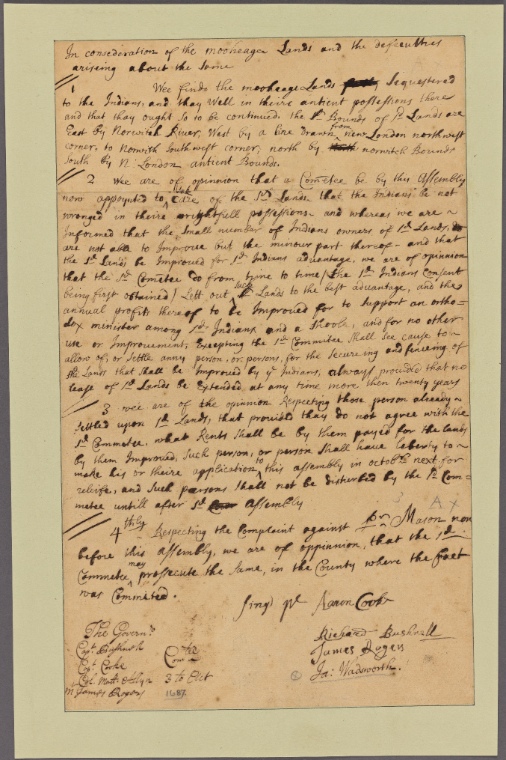 In consideration of the mooheage Lands and the defcultres
arising about the same
1
Wee finds the mooheage Lands Sequestered
to the Indians, and thay well in theire antient possessions there
and that thay ought so to be continued, the sd Bounds of sd Lands are
East by Norwich River, West by a line drawn from new London northwest
corner, to Norwich Southwest corner, north by norwich Bounds
South by N: London antient Bounds.
2 wee are of opinnion that a Cometee be by this Assembly
now appoynted to take Care of the sd Lands, that the Indians be not
wronged in theire wrightfull possessions and whereas we are
Informed that the Small number of Indians owners of sd Lands,
are not able to Improve but the minour part thereof - and that
the sd Lands be Improved for sd Indians advantage, we are of opinion
that the sd Cometee do from time to time (the sd Indians Consent
being first obtained) Lett out such Lands to the best advantage, and the
annual profits thereof to be Improved for to support an ortho-
dox minister among sd Indians, and a Shoole, and for no other
use or Improvement; Excepting the sd Committee Shall See cause to
allow of, or Settle anny person, or persons, for the Secureing and fenceing of
the Lands that shall be Improved by ye Indians, always provided that no
lease of sd Lands be Extended, at any time more then twenty years
3 wee are of the opinnion Respecting those person already
Settled upon sd Lands, that provided thay do not agree with the
sd Commetee, what Rents Shall be by them payed for the lands
by them Improved, Such person, or person Shall have leberty to
make his or theire application to this assembly in octobr next for
releife, and Such persons Shall not be disturbed by the sd Com-
metee untill after sd Assembly
4thly Respecting the Complaint against Brn Mason now
before this assembly, we are of oppinnion, that the sd
Commetee may prossecute the Same, in the County where the fact
was Commited.
Singd pr Aaron Cooke
Richard Bushnall
James Rogers
Ja: Wadsworth
The Governr
Capt Bushnell
Capt Cooke
Col. Matt
mr James Rogers
Comtte
3th Oct
1687
A X